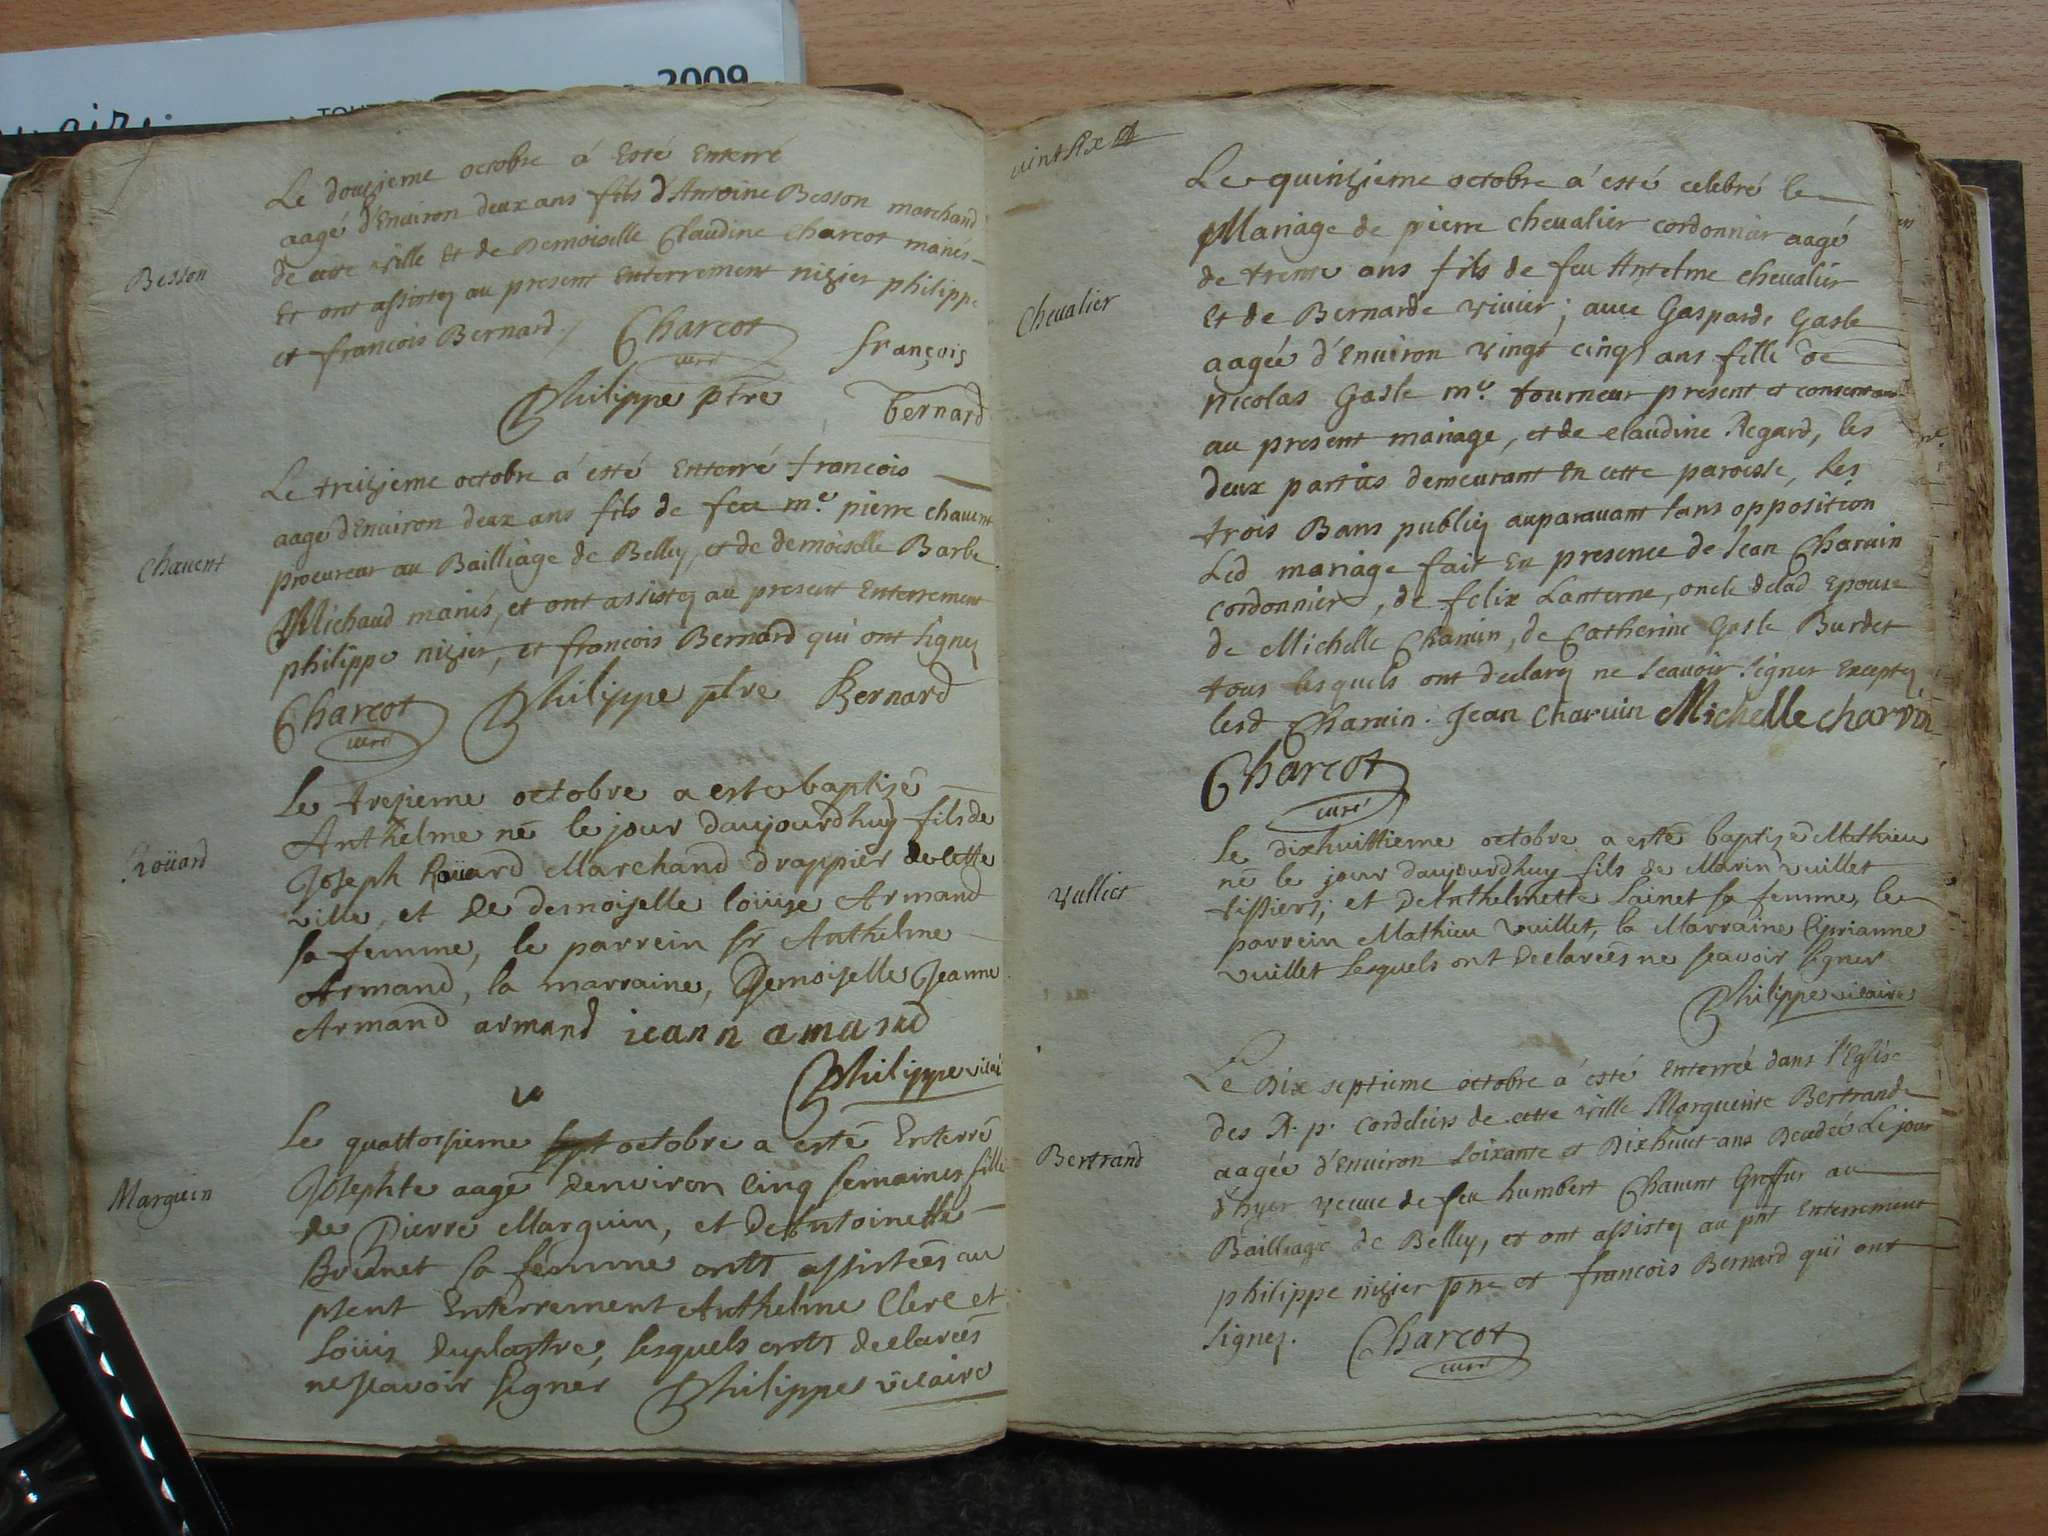 2009
Le douzieme octobre á Esté Enterré
aagé d'Environ deux ans fils d'Antoine Besson marchand
de cette ville Et de Demoiselle Claudine Charcot mariés
Et ont assistez au present Enterrement nizier philippe
et francois Bernard
Besson
Charcot
curé
françois
Philippe ptre
bernard
Le treizieme octobre á esté Enterré francois
aagé d'Environ deux ans fils de feu me. pierre chauent
procureur au Bailliage de Belley, et de demoiselle Barbe
Michaud mariés, et ont assistez au present Enterrement
philippe nizier, et francois Bernard qui ont signez
Chauent
Charcot
curé
Philippe ptre Bernard
Le tresieme octobre a este baptisé
Anthelme né le jour daujourdhuy fils de
Joseph Roüard Marchand drappier de cette
ville, et de demoiselle loüise Armand
sa femme, le parrein sr Anthelme
Armand, la marraine, Demoiselle Jeanne
Armand armand ieann amand
Roüard
Philippe vicai
Le quattorsieme octobre a esté Enterré
Josephte aagé denviron cinq semaines fille
de Pierre Marguin, et de Antoinette
Brunet sa femme onts assistées au
psent Enterrement Anthelme Clerc et
Loüis duplastre, lesquels onts declarées
ne scavoir signer Philippe vicaire
Marguin
vint six
Le quinzieme octobre á esté celebré le
Mariage de pierre chevalier cordonnier aagé
de trente ans fils de feu Antelme chevalier
Et de Bernarde vivier; avec Gasparde Gasle
aagée d'Environ vingt cinq ans fille de
nicolas Gasle me. tourneur present et consentant
au present mariage, et de claudine Regard, les
deux parties demeurant en cette paroisse, les
trois Bans publiez auparavant sans opposition
Led mariage fait En presence de Jean Charuin
cordonnier, de felix Lanterne, oncle delad Epouse
de Michelle Charuin, de Catherine Gasle Burdet
tous lesquels ont declarez ne scavoir signer Exceptez
lesd Charuin. Jean Charuin Michelle charvin
Chevalier
Charcot
curé
Le dixhuittieme octobre a esté baptisé Mathieu
né le jour daujourdhuy fils de Marin vuillet
tissiers; et de Anthelmette Lainet sa femme, le
parrein Mathieu vuillet, la Marraine Ciprianne
vuillet lesquels ont declarées ne scavoir signer
Vulliet
Philippe vicaire
Le Dix septieme octobre á esté Enterrée dans l'Eglise
des R. p. cordeliers de cette ville Marguerite Bertrande
aagée d'Environ soixante et Dixhuict ans Decedée Le jour
d'hyer veuve de feu humbert Chauent Greffier au
Bailliage de Belley, et ont assistez au pnt Enterrement
philippe nizier ptre et francois Bernard qui ont
signez.
Bertrand
Charcot
curé